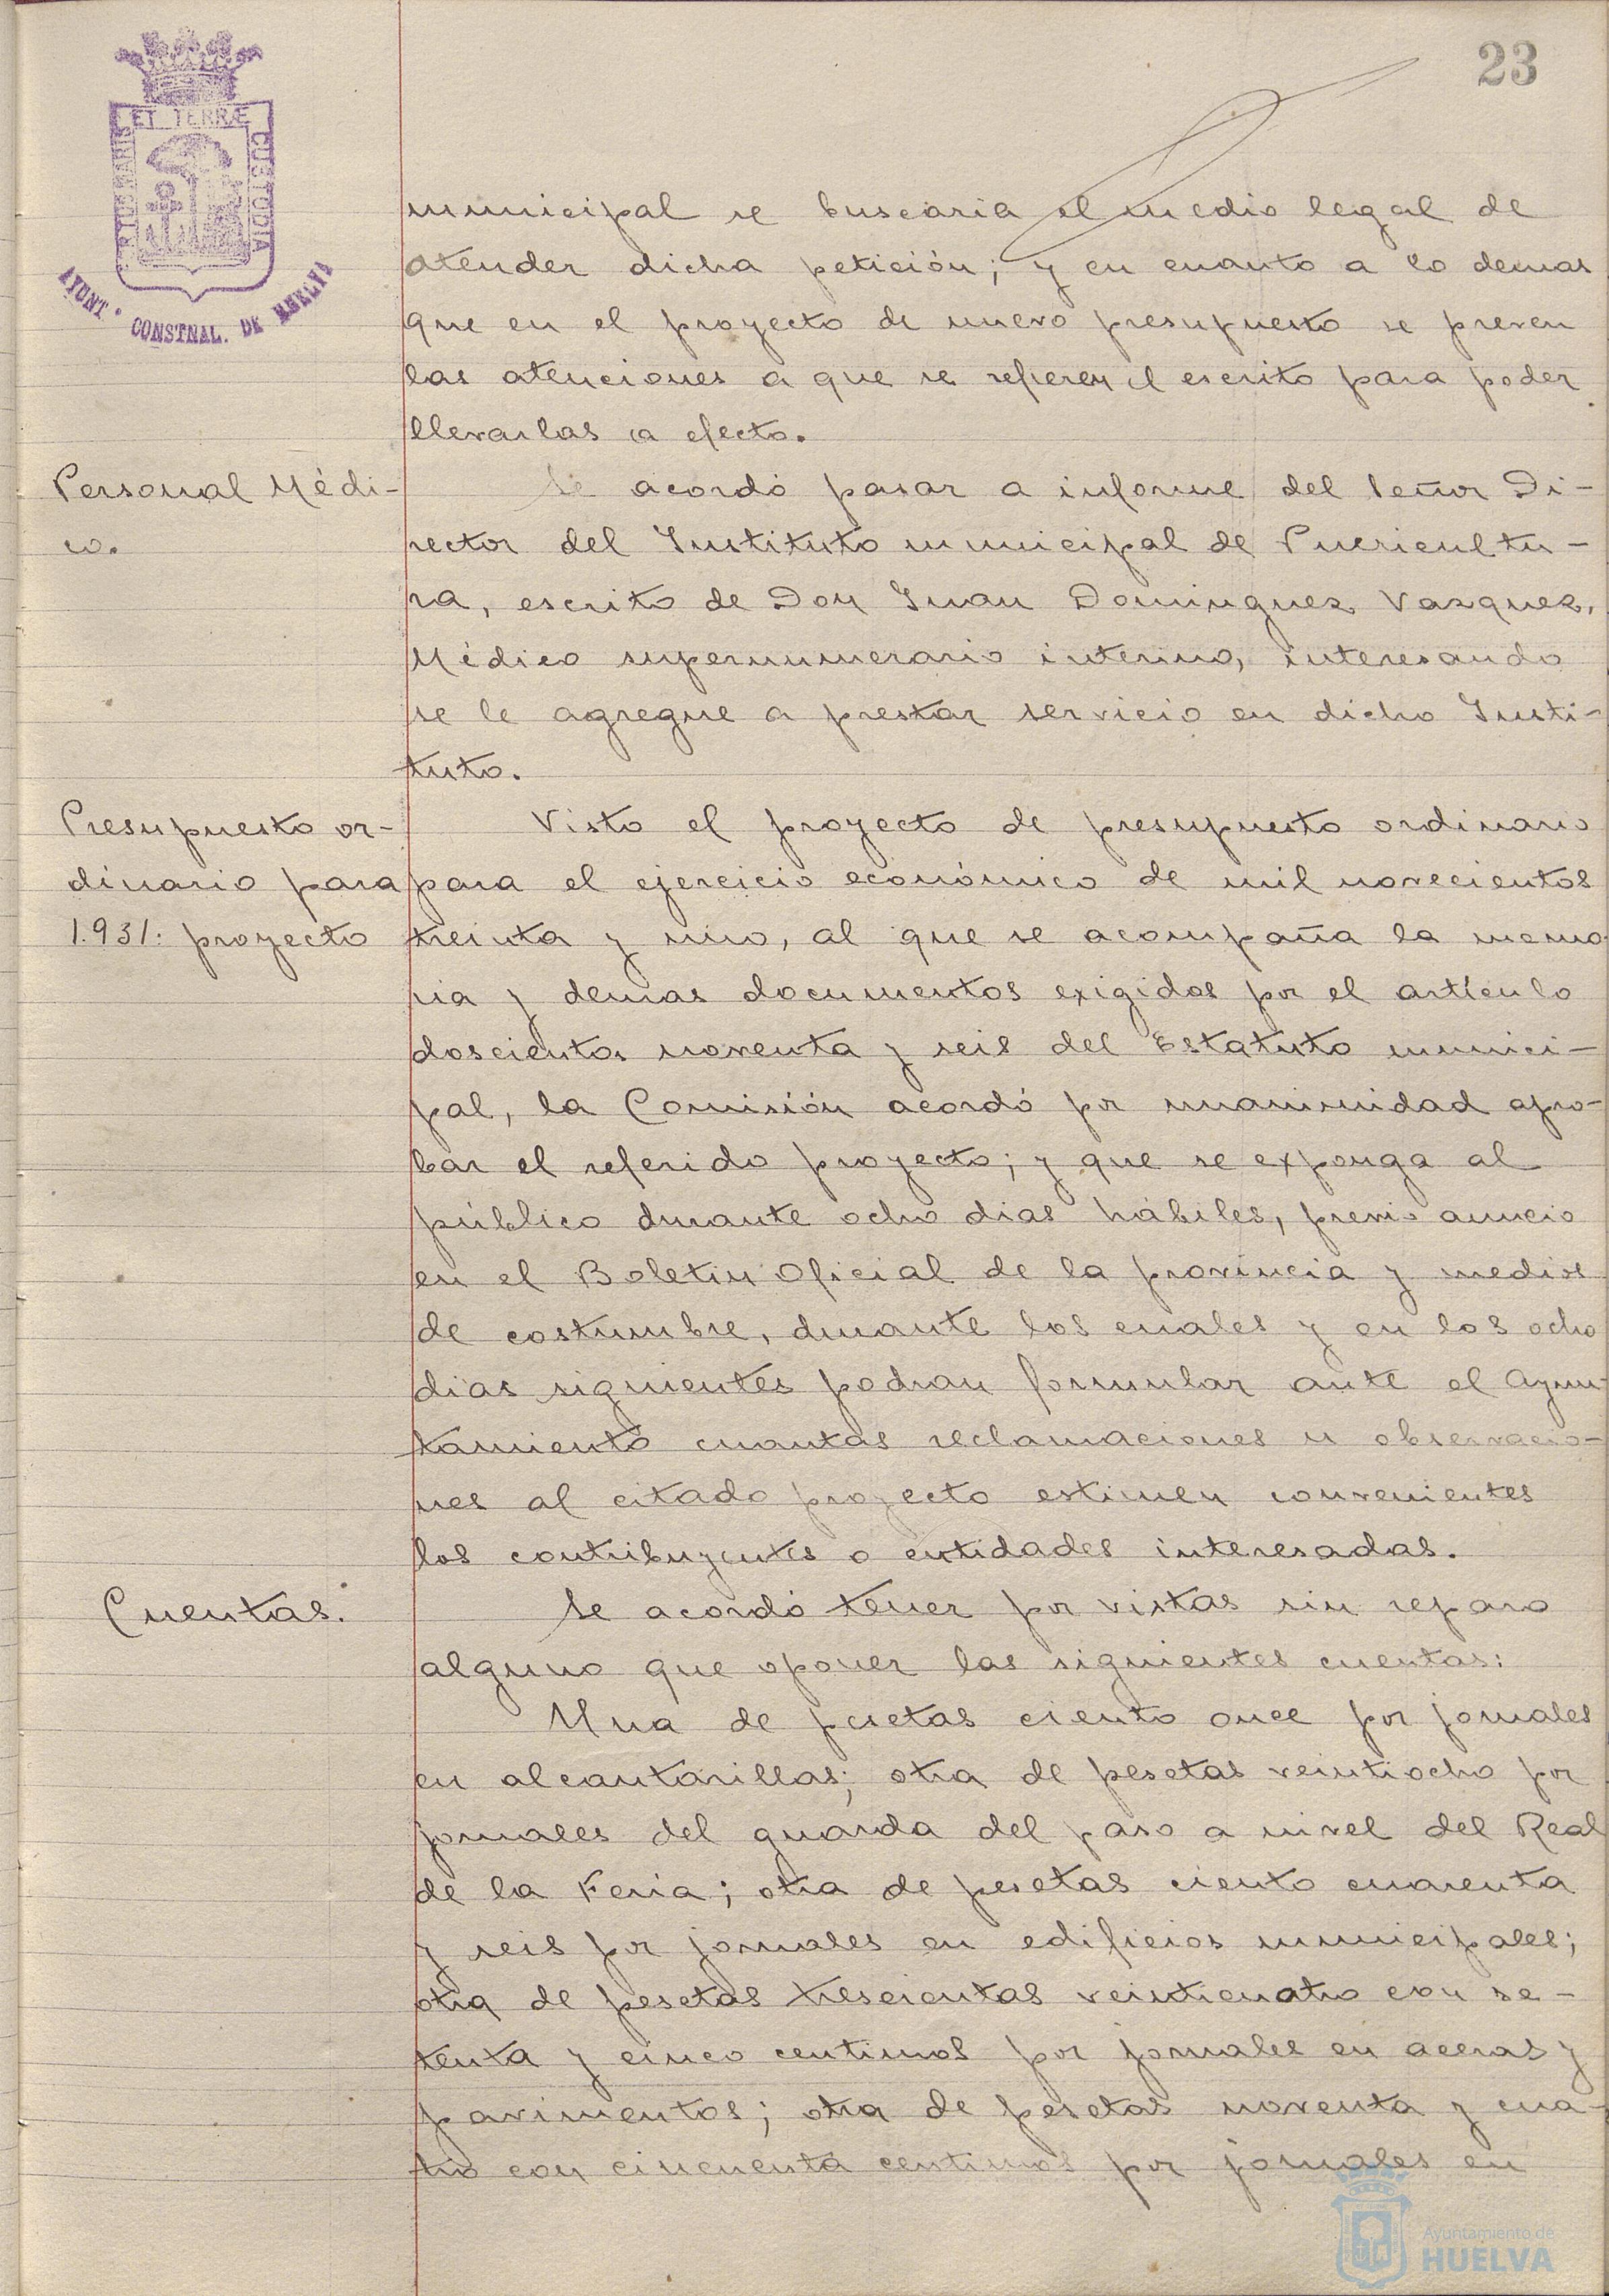 23
ET TERRÆ
PORTUS MARIS
CUSTODIA
AYUNT° CONSTNAL. DE HUELVA
municipal se buscaria el medio legal de
atender dicha petición; y en cuanto a lo demas
que en el proyecto de nuevo presupuesto se preven
las atenciones a que se referen el escrito para poder
llevarlas a efecto.
Personal Médi-
co.
Se acordó pasar a informe del Señor Di-
rector del Instituto municipal de Puericultu-
ra, escrito de Don Juan Dominguez Vazquez,
Médico supernumerario interino, interesando
se le agregue a prestar servicio en dicho Insti-
tuto.
Presupuesto or-
dinario para
1.931: proyecto
Visto el proyecto de presupuesto ordinario
para el ejercicio económico de mil novecientos
treinta y uno, al que se acompaña la memo
ria y demas documentos exigidos por el artículo
doscientos noventa y seis del Estatuto munici-
pal, la Comisión acordó por unanimidad apro-
bar el referido proyecto; y que se exponga al
público durante ocho dias hábiles, previo anuncio
en el Boletin Oficial de la provincia y medios
de costumbre, durante los cuales y en los ocho
dias siguientes podran formular ante el Ayun-
tamiento cuantas reclamaciones u observacio-
nes al citado proyecto estimen convenientes
los contribuyentes o entidades interesadas.
Cuentas.
Se acordó tener por vistas sin reparo
alguno que oponer las siguientes cuentas:
Una de pesetas ciento once por jornales
en alcantarillas; otra de pesetas veintiocho por
jornales del guarda del paso a nivel del Real
de la Feria; otra de pesetas ciento cuarenta
y seis por jornales en edificios municipales;
otra de pesetas trescientas veinticuatro con se-
tenta y cinco centimos por jornales en aceras y
pavimentos; otra de pesetas noventa y cua-
tro con cincuenta centimos por jornales en
Ayuntamiento de
HUELVA